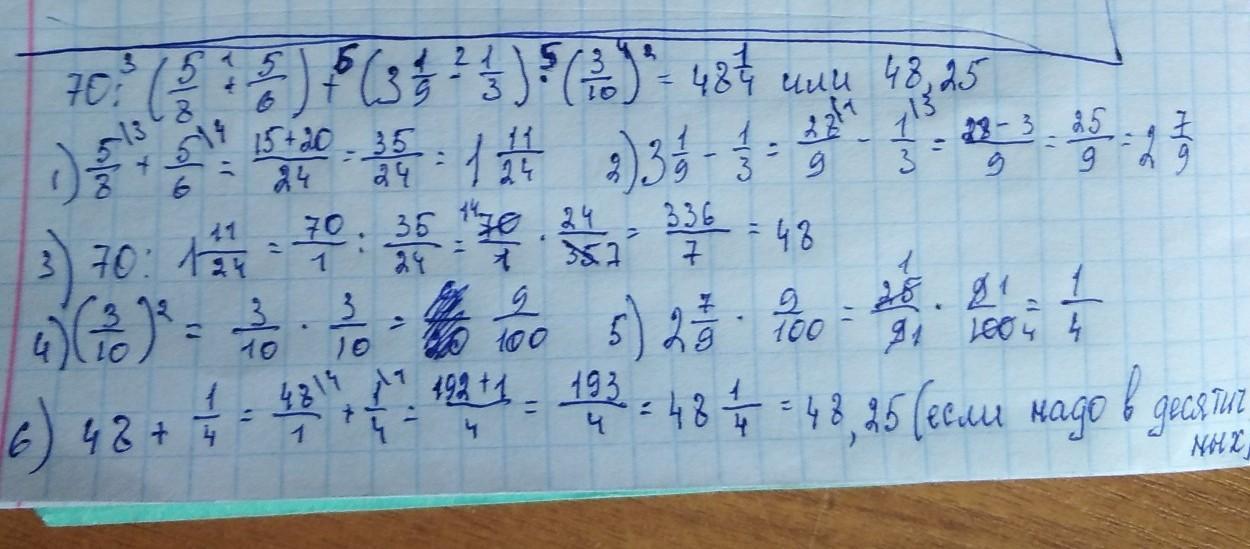 70 :³ (5/8 +¹ 5/6) +⁶ (3 1/9 -² 1/3) ·⁵ (3/10)²⁴ = 48 1/4 или 48,25
1) 5/8 \3 + 5/6 \4 = 15+20/24 = 35/24 = 1 11/24 2) 3 1/9 - 1/3 = 28/9 \1 - 1/3 \3 = 28-3/9 = 25/9 = 2 7/9
3) 70 : 1 11/24 = 70/1 : 35/24 = 14 70/1 · 24/35 7 = 336/7 = 48
4) (3/10)² = 3/10 · 3/10 = 9/100 5) 2 7/9 · 9/100 = 1 25/9 1 · 9 1/100 4 = 1/4
6) 48 + 1/4 = 48/1 \4 + 1/4 \1 = 192+1/4 = 193/4 = 48 1/4 = 48,25 (если надо в десятич
ных)